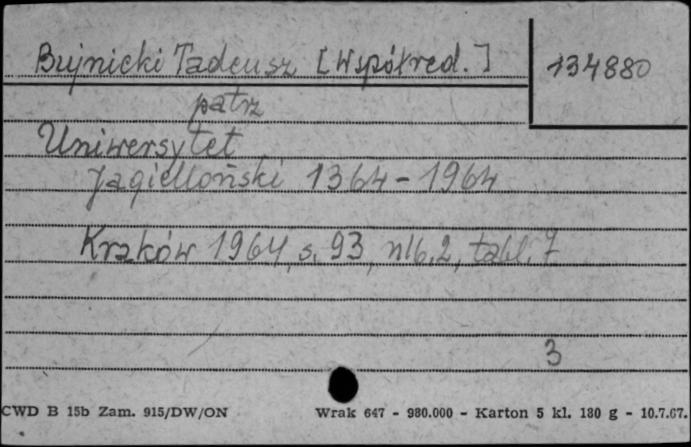 Bujnicki Tadeusz [Współred.]
134880
patrz
Uniwersytet
Jagielloński 1364-1964
Kraków 1964, s. 93, nlb. 2, tabl. 7
3
CWD B 15b Zam. 915/DW/ON
Wrak 647 - 980.000 - Karton 5 kl. 180 g - 10.7.67.